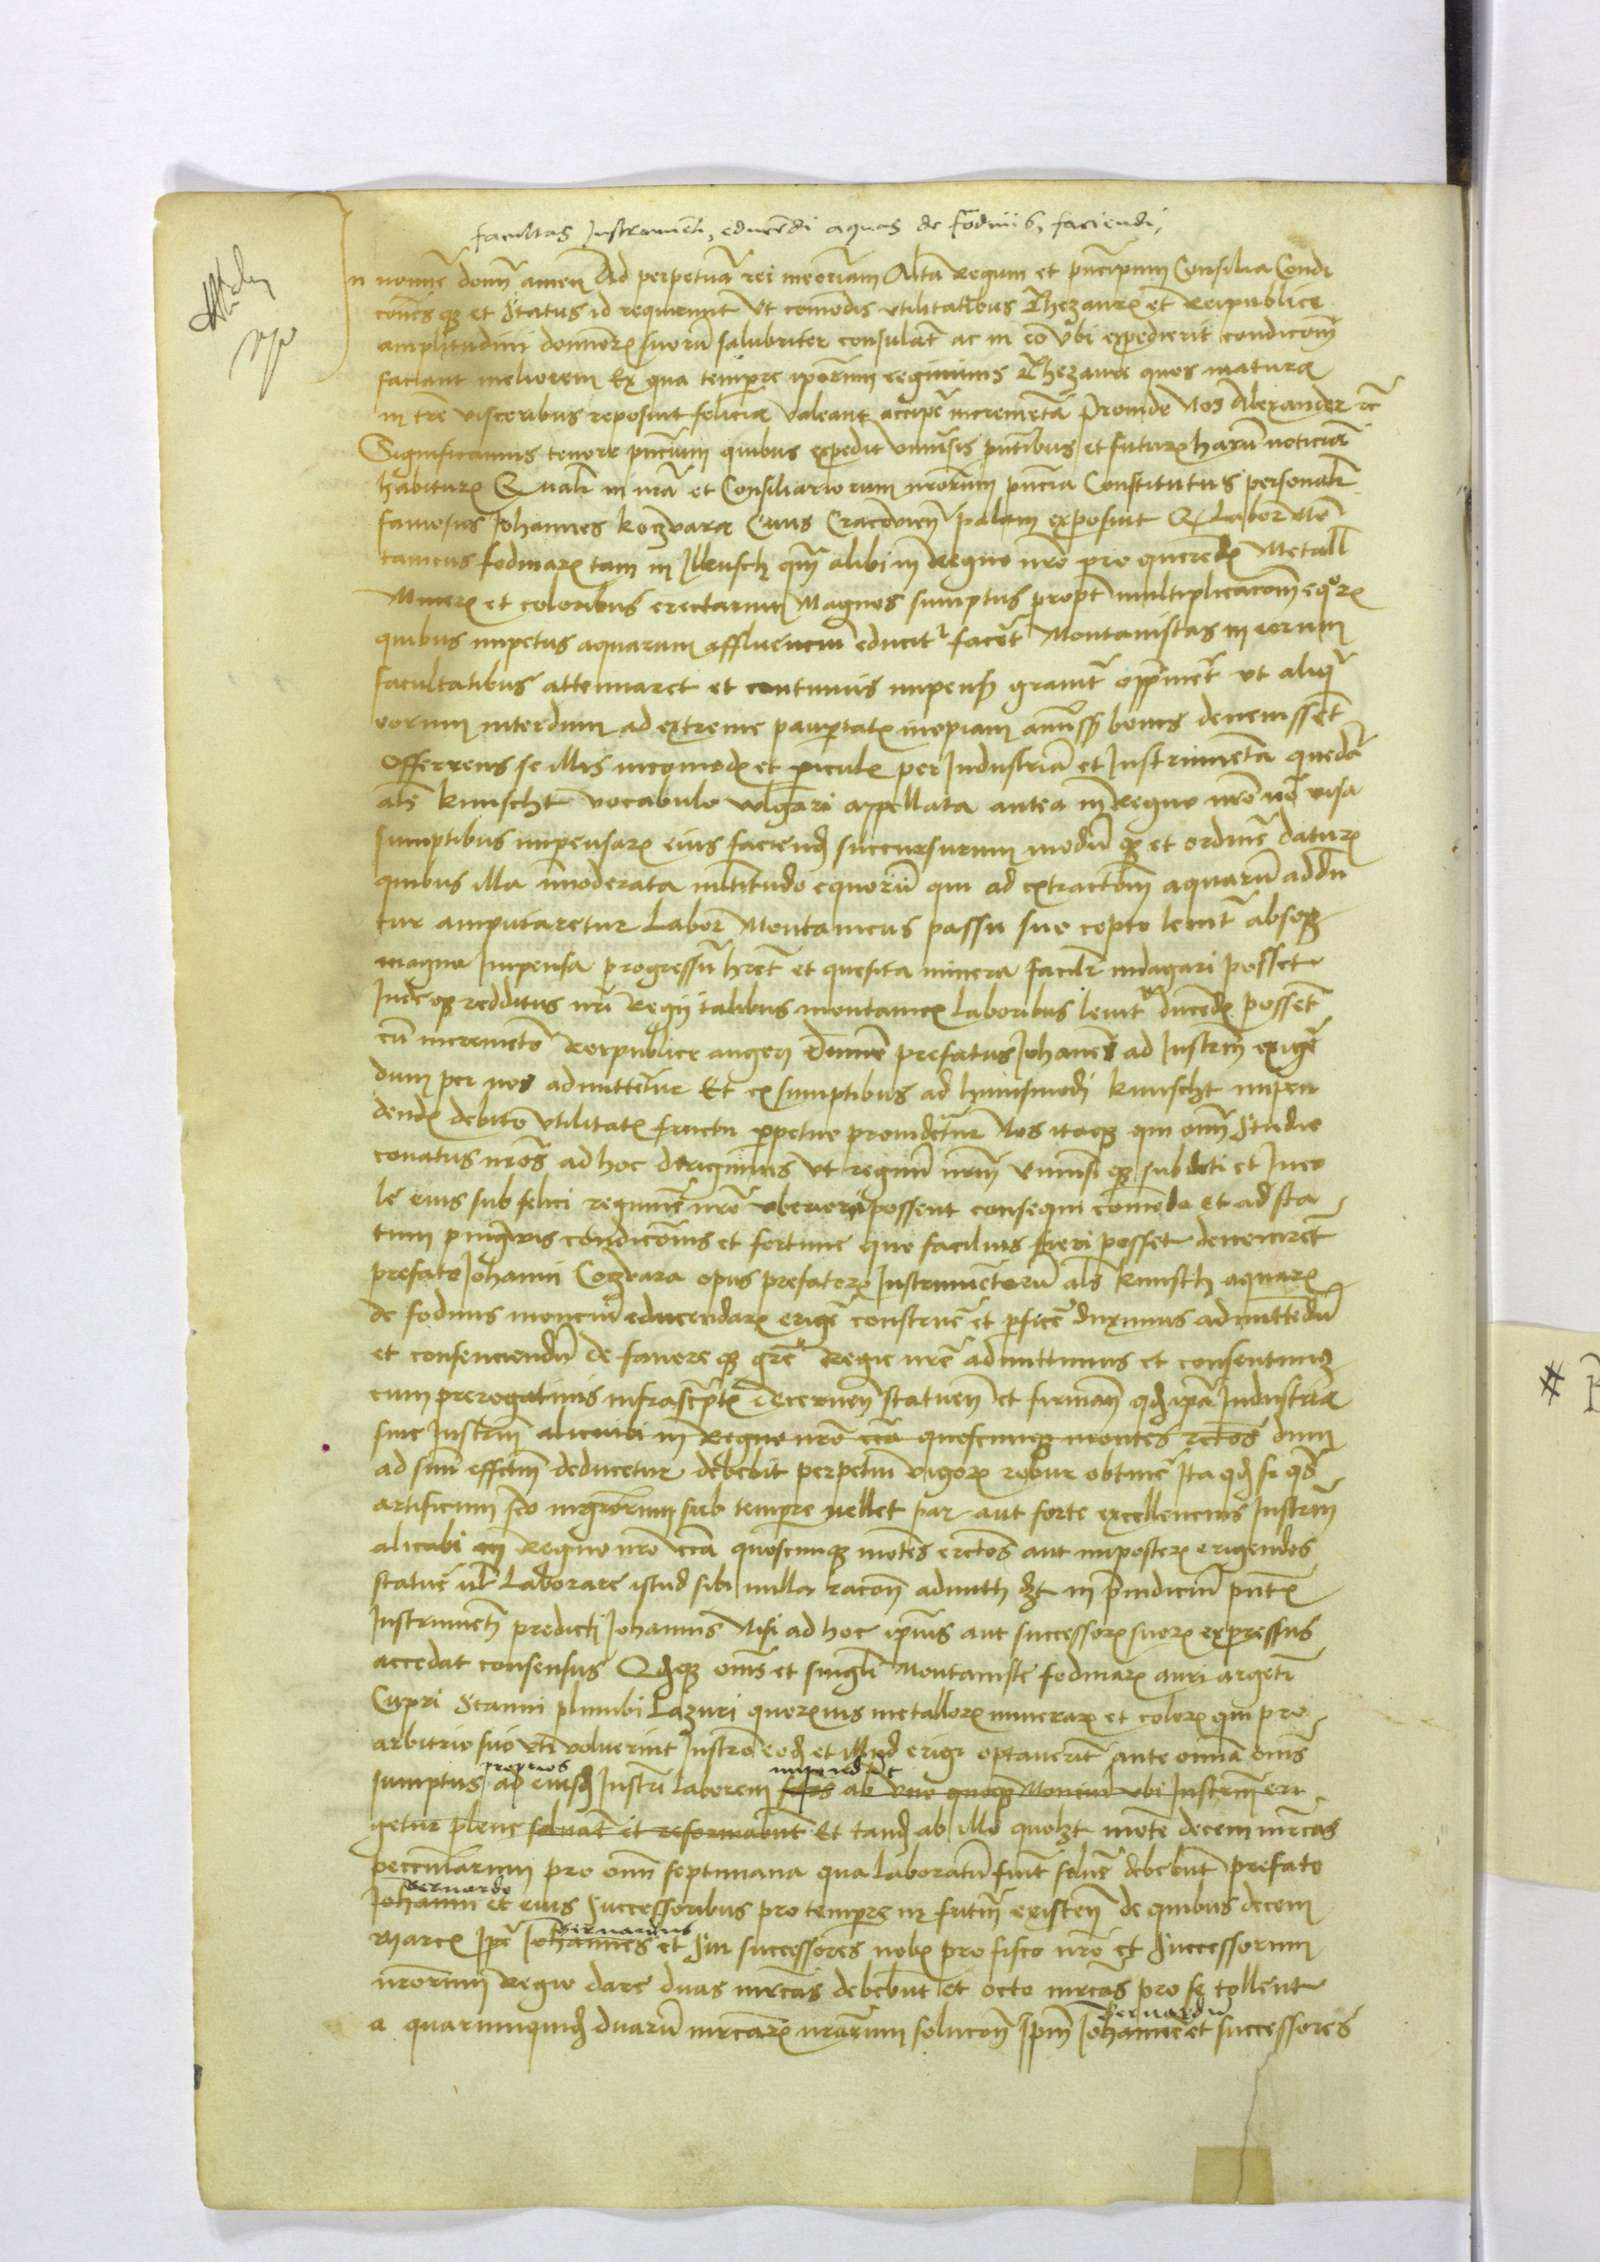 facultas Instrumenti, educendi aquas de fodinis, faciendi,
In nomine domini amen Ad perpetuam rei memoriam Alta Regum et principum Consilia Condi
cionis que et Status id requirunt Ut comodis utilitatibus Thezauri et Reipublice
amplitudini dominorum suorum salubriter consulant ac in eo ubi expedierit condicionem
faciant meliorem Ex qua tempore ipsorum regiminis Thezauri quos natura
in terre visceribus reposuit felicia valeant accipere incrementa Proinde Nos Alexander etc
Significamus tenore presencium quibus expedit universis presentibus et futuris harum noticiam
habituris Qualiter in nostra et Consiliariorum nostrorum presencia Constitutus personaliter
famosus Johannes koczvara Civis Cracoviensis palam exposuit Quod Labor Mon
tanicus fodinarum tam in Ilkusch quam alibi in Regno nostro pro querendis Metallis
Mineris et coloribus erectarum Magnos sumptus propter multiplicacionem equorum
quibus impetus aquarum affluencium educitur faceret Montanistas in eorum
facultatibus attenuaret et continuis impensis graviter opprimeret ut aliqui
eorum interdum ad extreme paupertatis inopiam amissis bonis devenissent
Offerrens se illis incomodis et periculis per Industriam et Instrumenta quedam
alias kunscht vocabulo vulgari appellata antea in Regno nostro non visa
sumptibus impensarum eius faciendis succursurum modum que et ordinem daturum
quibus illa immoderata multitudo equorum qui ad extractionem aquarum addu
tur amputaretur Labor Montanicus passu suo cepto leviter absque
magna Impensa progressum haberet et quesita minera faciliter indagari posset
Inde que redditus nostri Regii talibus montanicis laboribus leviter ducendis possent
cum incremento Reipublice augeri Dumodo prefatus Johannes ad Instrumentum erigen
dum per nos admitteretur Et ex sumptibus ad huiusmodi kunscht impen
dendis debito utilitatis fructu perpetuo provideretur Nos itaque qui omni Studio
conatus nostros ad hoc dirigimus ut regnum nostrum Universi que subditi et Inco
le eius sub felici regimine nostro uberiora possent consequi comoda et ad sta
tum pinguioris condicionis et fortune quo facilius fieri posset devenirent
prefato Johanni Coczvara opus prefatorum Instrumentorum alias kunsth aquarum
de fodinis moncium educendarum erigere construere et perficere duximus admittendum
et consenciendum de favore que gracie Regie nostre admittimus et consentimus
cum prerogativis infrascriptis decernentes statuentes et firmantes quod ipsa Industria
sive Instrumentum alicubi in Regno nostro circa quoscumque montes rectos dum
ad suum effectum deducetur debebit perpetui vigoris robur obtinere Ita quod si quis
artificum seu ingeniorum sub tempore vellet par aut forte excellencius Instrumentum
alicubi in Regno nostro circa quoscumque montes erectos aut imposterum erigendos
statuere vel Laborare istud sibi nulla racione admitti debet in preiudicium presentis
Instrumenti predicti Johannis Nisi ad hoc ipsius aut successorum suorum expressus
accedat consensus Quodque omnes et singuli Montaniste fodinarum auri argenti
Cupri Stanni plumbi Lazuri quorumvis metallorum minerarum et colorum qui pro
arbitrio suo uti voluerint Instrumento eodem et illud erigi optaverint ante omnia omnes
sumptus proprios ad eiusdem Instrumenti laborem impendent ab uno quoque Moncium ubi Instrumentum eri
getur plene solvant et reformabunt Et tandem ab illo quolibet monte decem marcas
peccuniarum pro omni septimana qua laboratum fuerit solvere debebunt prefato
Johanni Bernardo et eius Successoribus pro tempore in futurum existentibus de quibus decem
Marcis Ipse Johannes Bernardus et sui successores nobis pro fisco nostro et Successorum
nostrorum Regio dare duas marcas debebunt et octo marcas pro se tollent
a quarumquidem duarum marcarum nostrarum solucione Ipsum Johannem Bernardum et successores